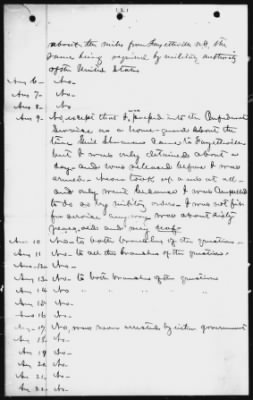 about the miles from Fayetteville N.C. the
same being required by military authority
of the United States
Ans 6 - No -
Ans 7 - No -
Ans 8 - No -
Ans 9 - No, except that I was into the Confederate
Service as a home-guard about the
time Genl Sherman came to Fayetteville
but I was only detained about a
day and was released before I was
armed - never took up arms at all -
and only went because I was compelled
to do so by military orders - I was not fit
for service any way was about sixty
years old and very deaf -
Ans 10 No - to both branches of the question -
Ans 11 No - to all the branches of the question.
Ans 12 No -
Ans 13 No - to both branches of the question
Ans 14 No " "
Ans 15 No -
Ans 16 No -
Ans 17 No, was never arrested by either government
Ans 18 No -
Ans 19 No -
Ans 20 No -
Ans 21 No -
Ans 22 No -